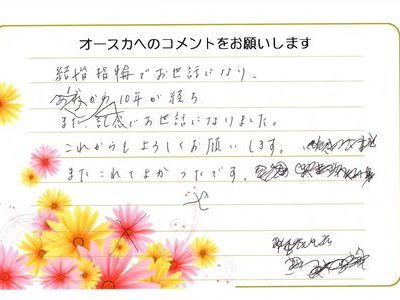 オースカへのコメントをお願いします
結婚指輪でお世話になり、
から10年が経ち
また、記念でお世話になりました。
これからもよろしくお願いします。
またこれてよかったです。